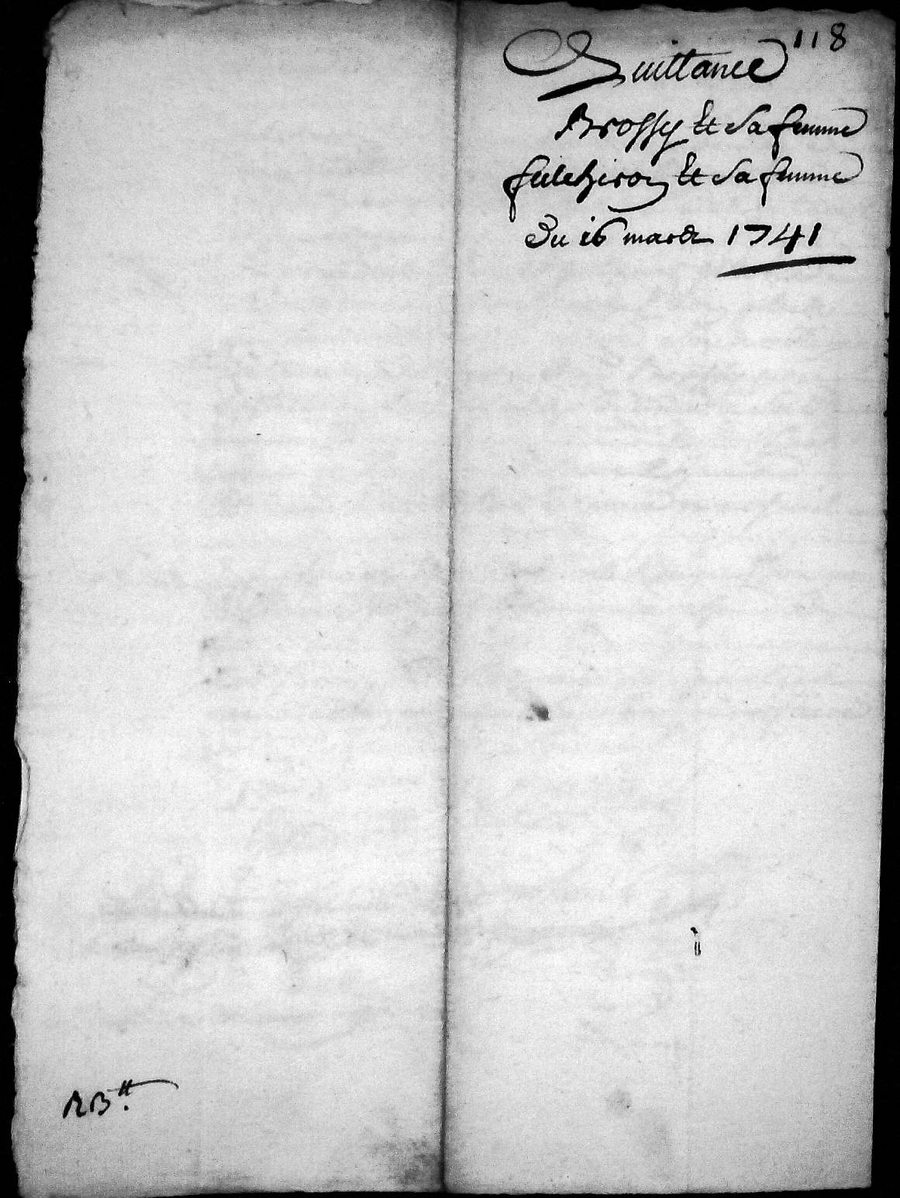 118
Quittance
Brossy et sa femme
fulchiron et sa femme
Du 16 mars 1741